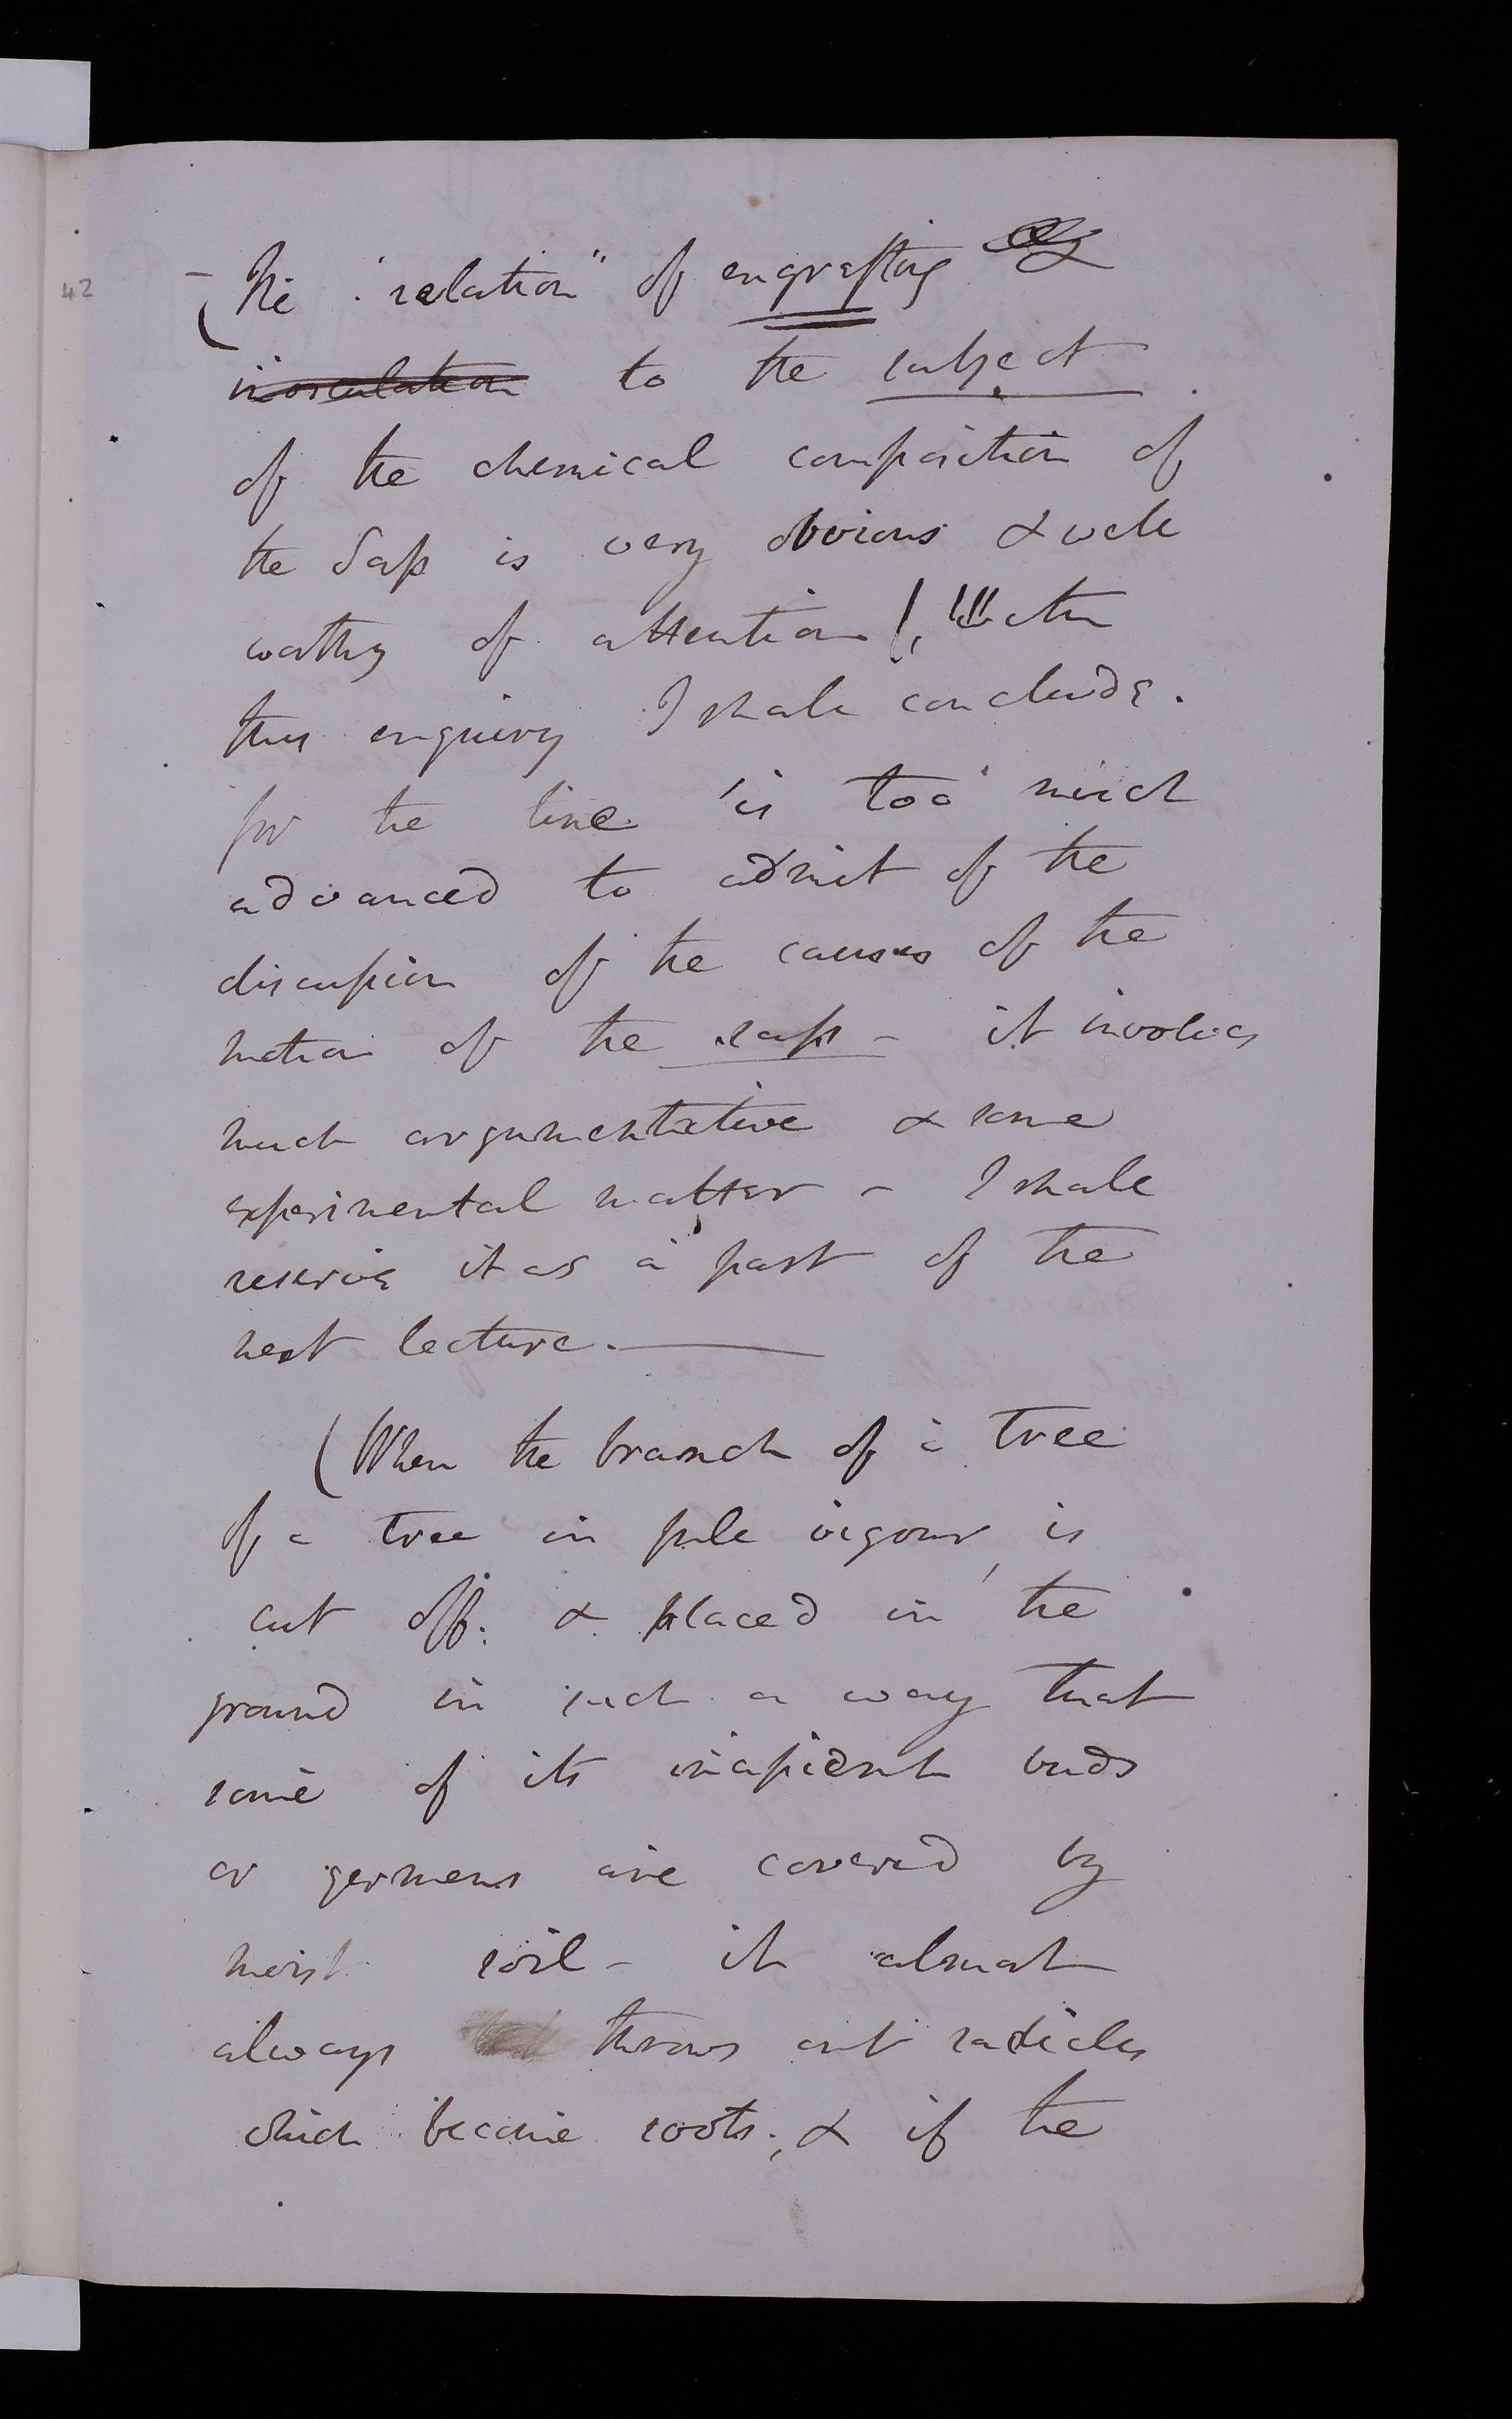 42
- (The "relation" of engrafting &
inosculation to the subject
of the chemical composition of
the Sap is very obvious & well
worthy of attention!, !!! with
this enquiry I shall conclude.
for the time is too much
advanced to admit of the
discussion of the causes of the
motion of the sap - it involves
much argumentative & some
experimental matter - I shall
reserve it as a part of the
next lecture. —
(When the branch of a tree
of a tree in full vigour, is
cut off. & placed in the
ground in such a way that
some of its incipient buds
or germens are covered by
moist soil - it almost
always throws out radicles
which become roots; & if the